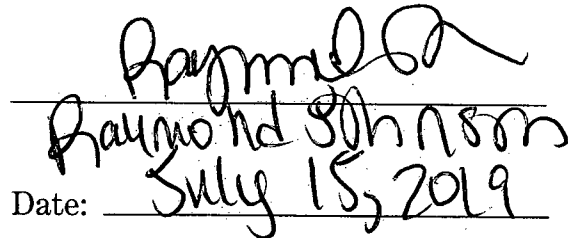 Raymond
Raymond Johnson
Date: July 15, 2019